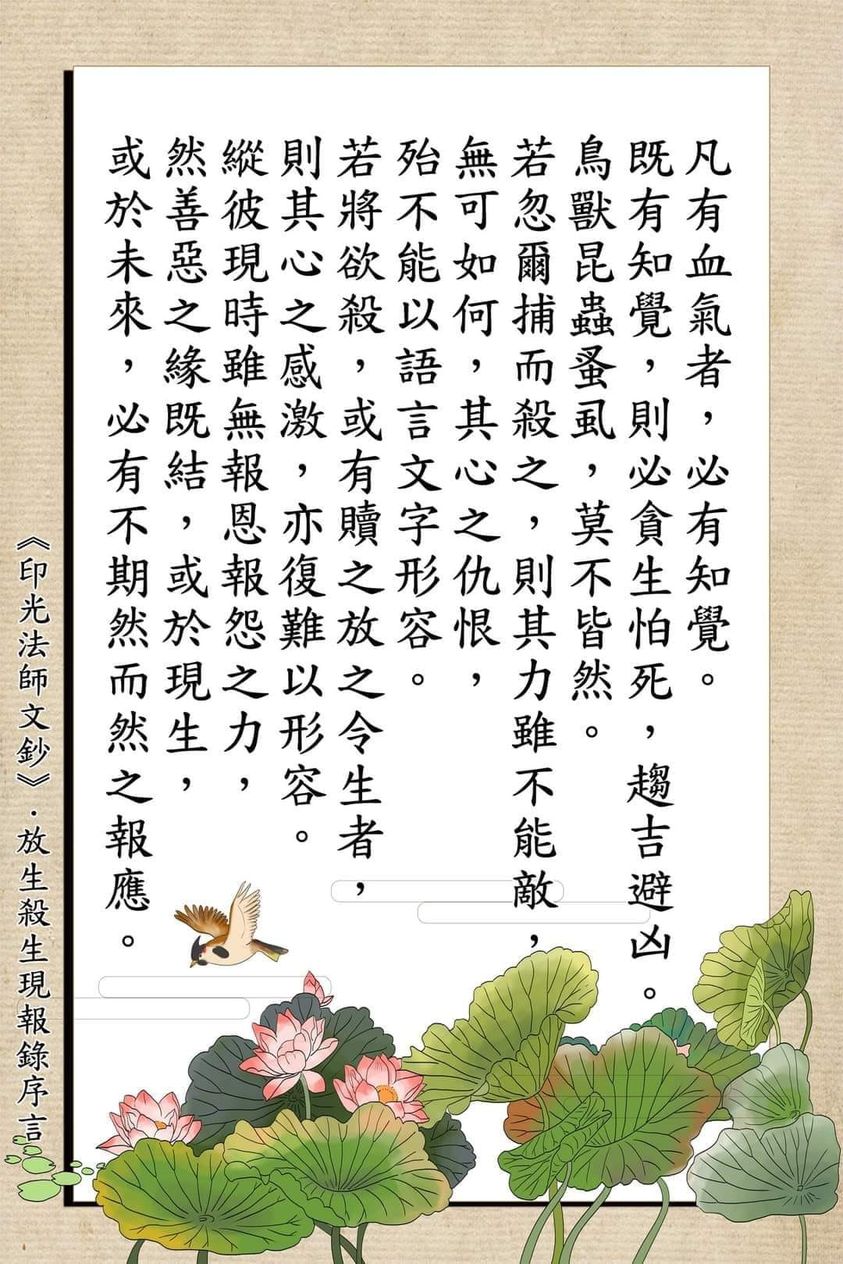 凡有血氣者，必有知覺。
既有知覺，則必貪生怕死，趨吉避凶。
鳥獸昆蟲蚤虱，莫不皆然。
若忽爾捕而殺之，則其力雖不能敵，
無可如何，其心之仇恨，
殆不能以語言文字形容。
若將欲殺，或有贖之放之令生者，
則其心之感激，亦復難以形容。
縱彼現時雖無報恩報怨之力，
然善惡之緣既結，或於現生，
或於未來，必有不期然而然之報應。
《印光法師文鈔》．放生殺生現報錄序言